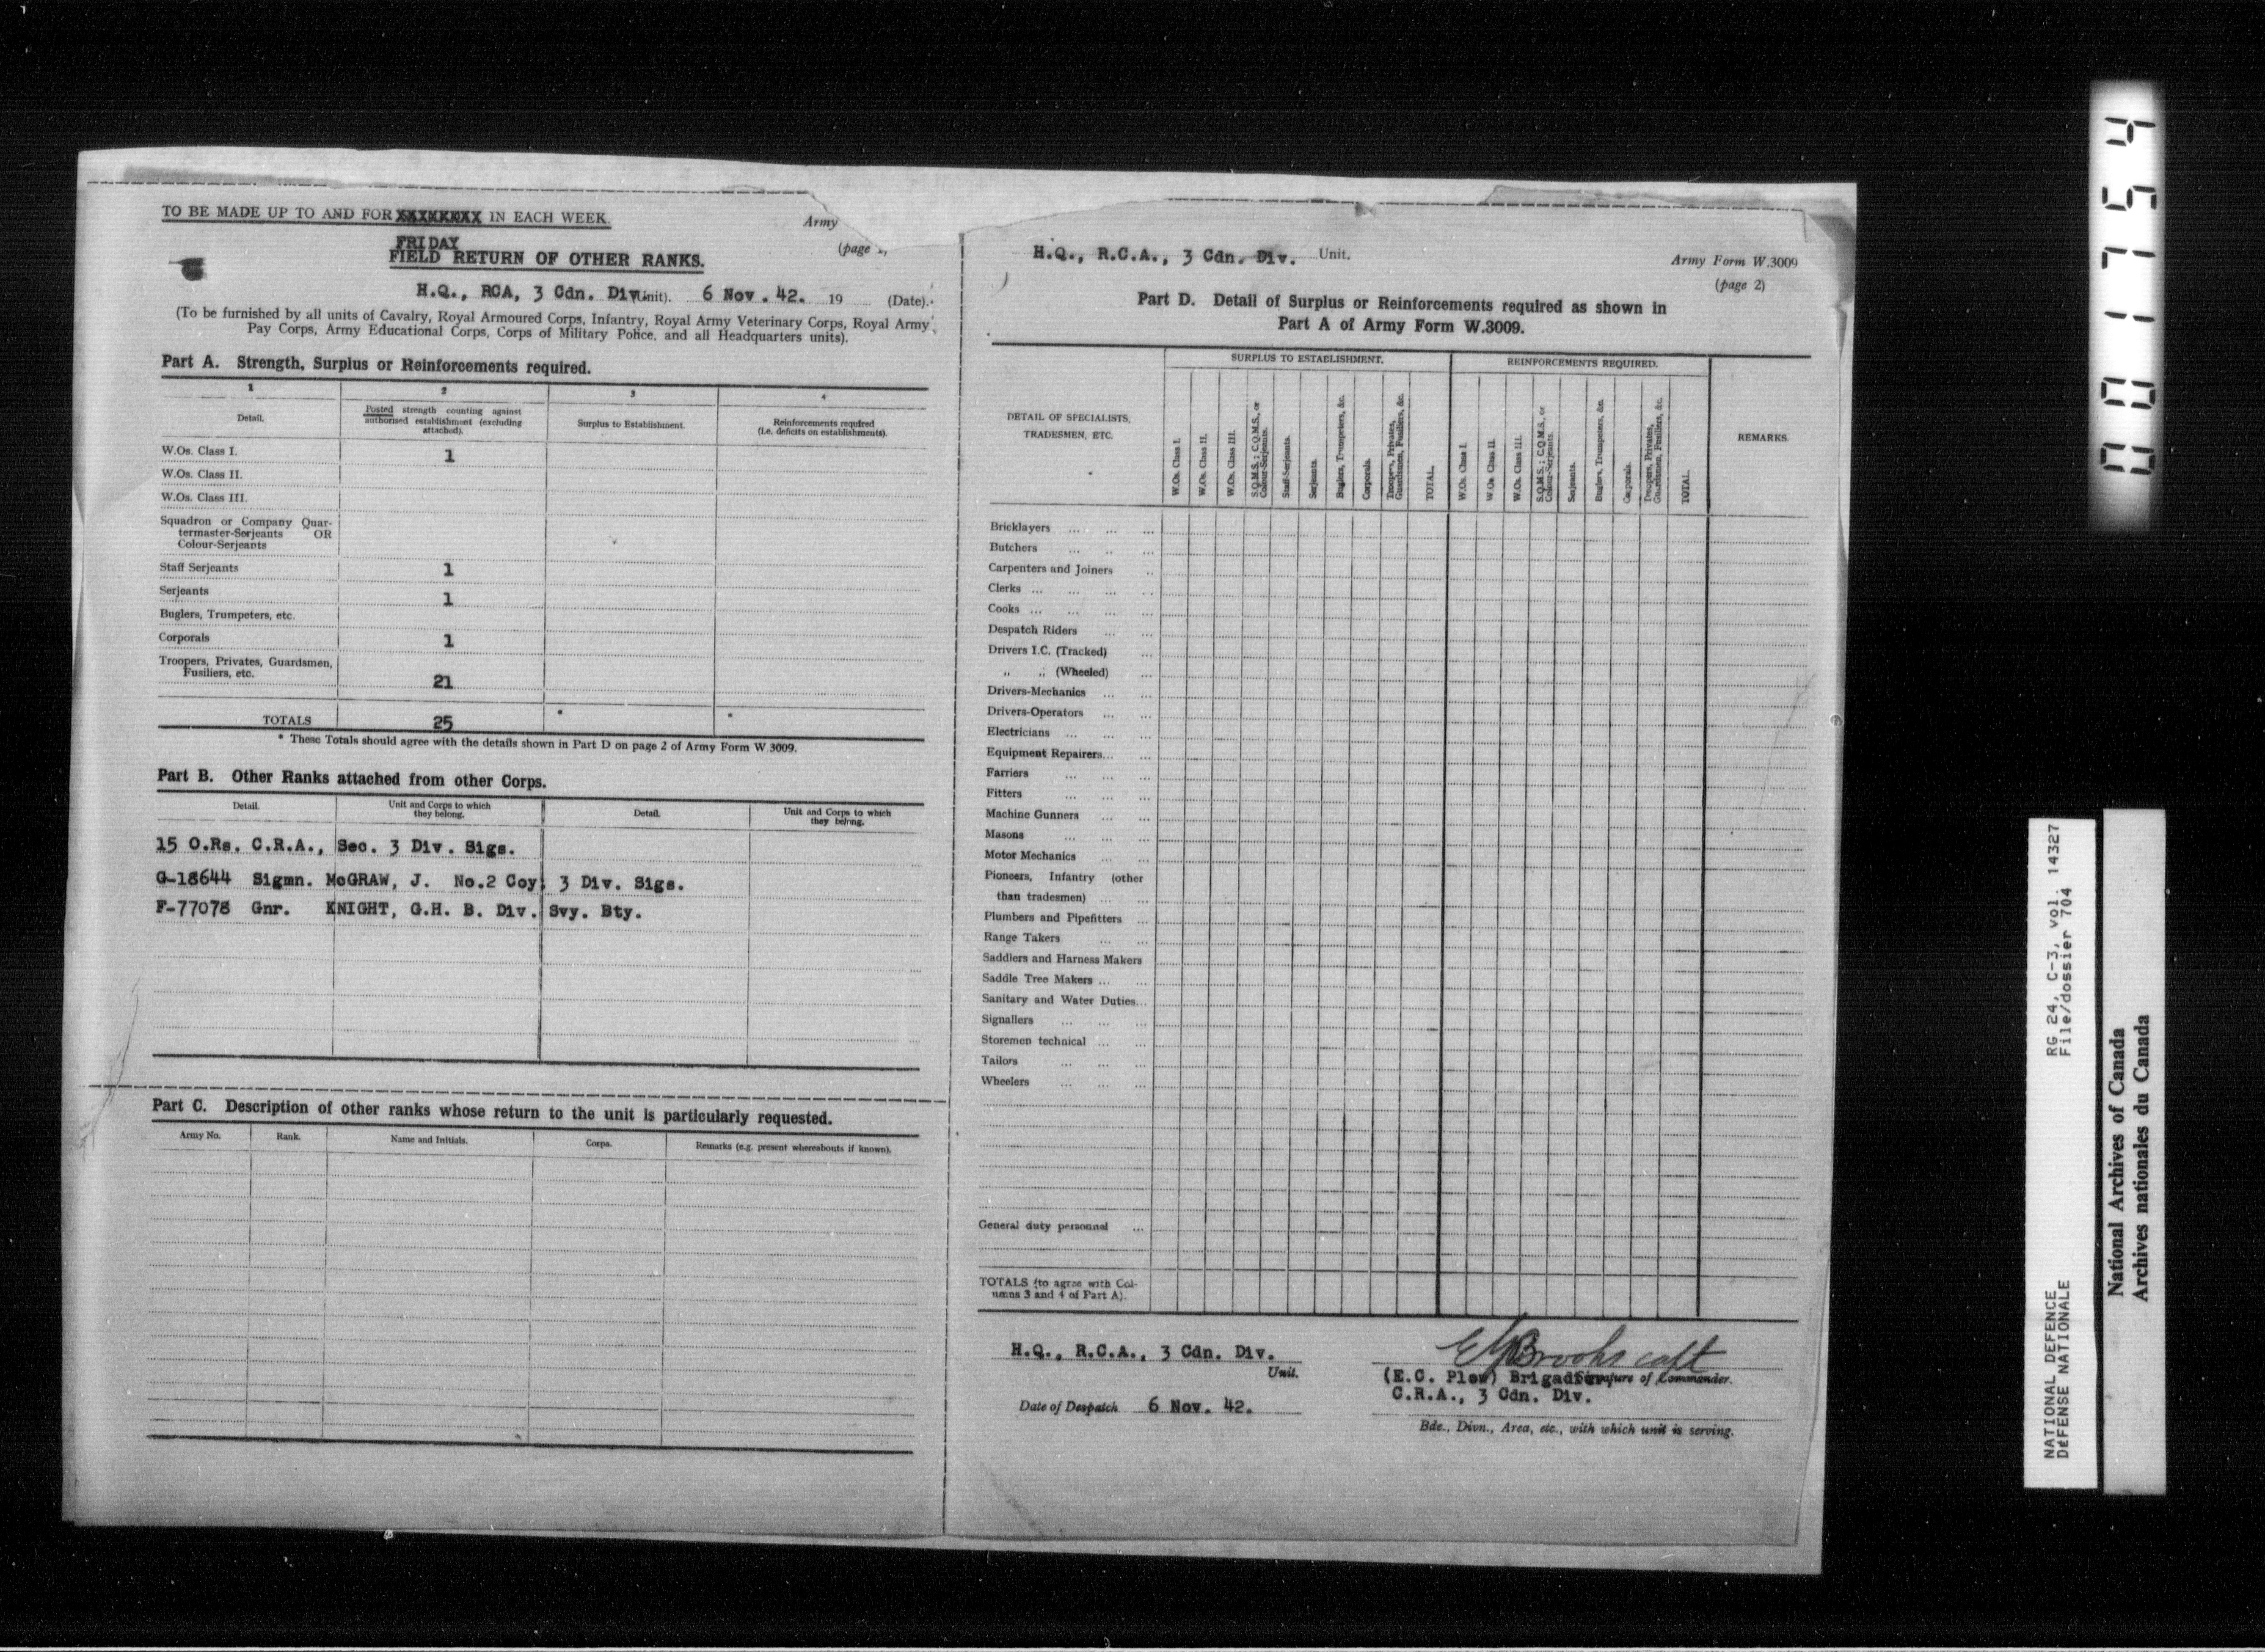 TO BE MADE UP TO AND FOR XXXXXXXX IN EACH WEEK.
Army
FRIDAY
(page
FIELD RETURN OF OTHER RANKS.
H.Q., RCA, 3 Cdn. Div. Unit). 6 Nov. 42. 19 (Date).
(To be furnished by all units of Cavalry, Royal Armoured Corps, Infantry, Royal Army Veterinary Corps, Royal Army
Pay Corps, Army Educational Corps, Corps of Military Police, and all Headquarters units).
Part A. Strength, Surplus or Reinforcements required.
1 2 3 4
Detail.
Posted strength counting against
authorised establishment (excluding
attached).
Surplus to Establishment.
Reinforcements required
(i.e. deficits on establishments).
W.Os. Class I. 1
W.Os. Class II.
W.Os. Class III.
Squadron or Company Quar-
termaster-Serjeants OR
Colour-Serjeants
Staff Serjeants 1
Serjeants 1
Buglers, Trumpeters, etc.
Corporals 1
Troopers, Privates, Guardsmen,
Fusiliers, etc. 21
TOTALS 25 * *
* These Totals should agree with the details shown in Part D on page 2 of Army Form W.3009.
Part B. Other Ranks attached from other Corps.
Detail.
Unit and Corps to which
they belong.
Detail.
Unit and Corps to which
they belong.
15 O.Rs. C.R.A., Sec. 3 Div. Sigs.
G-18644 Sigmn. McGRAW, J. No.2 Coy. 3 Div. Sigs.
F-77078 Gnr. KNIGHT, G.H. B. Div. Svy. Bty.
Part C. Description of other ranks whose return to the unit is particularly requested.
Army No. Rank. Name and Initials. Corps. Remarks (e.g. present whereabouts if known).
H.Q., R.C.A., 3 Cdn. Div. Unit.
Army Form W.3009
(page 2)
Part D. Detail of Surplus or Reinforcements required as shown in
Part A of Army Form W.3009.
DETAIL OF SPECIALISTS,
TRADESMEN, ETC.
SURPLUS TO ESTABLISHMENT.
W.Os. Class I.
W.Os. Class II.
W.Os. Class III.
S.Q.M.S.; C.Q.M.S., or
Colour-Serjeants.
Staff-Serjeants.
Serjeants.
Buglers, Trumpeters, &c.
Corporals.
Troopers, Privates,
Guardsmen, Fusiliers, &c.
TOTAL.
REINFORCEMENTS REQUIRED.
W.Os. Class I.
W.Os. Class II.
W.Os. Class III.
S.Q.M.S.; C.Q.M.S., or
Colour-Serjeants.
Serjeants.
Buglers, Trumpeters, &c.
Corporals.
Troopers, Privates,
Guardsmen, Fusiliers, &c.
TOTAL.
REMARKS.
Bricklayers
Butchers
Carpenters and Joiners
Clerks
Cooks
Despatch Riders
Drivers I.C. (Tracked)
„ „ (Wheeled)
Drivers-Mechanics
Drivers-Operators
Electricians
Equipment Repairers
Farriers
Fitters
Machine Gunners
Masons
Motor Mechanics
Pioneers, Infantry (other
than tradesmen)
Plumbers and Pipefitters
Range Takers
Saddlers and Harness Makers
Saddle Tree Makers
Sanitary and Water Duties
Signallers
Storemen technical
Tailors
Wheelers
General duty personnel
TOTALS (to agree with Col-
umns 3 and 4 of Part A).
H.Q., R.C.A., 3 Cdn. Div.
Unit.
Brooks capt
(E.C. Plow) Brigadier, Signature of Commander.
C.R.A., 3 Cdn. Div.
Date of Despatch 6 Nov. 42.
Bde., Divn., Area, etc., with which unit is serving.
001754
RG 24, C-3, vol. 14327
File/dossier 704
NATIONAL DEFENCE
DÉFENSE NATIONALE
National Archives of Canada
Archives nationales du Canada